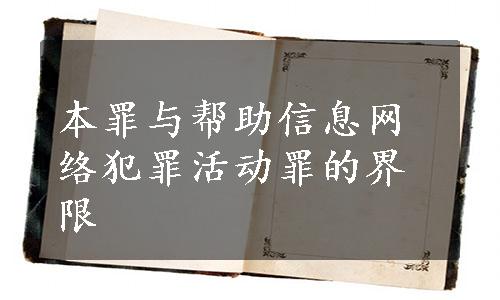 本罪与帮助信息网
络犯罪活动罪的界
限